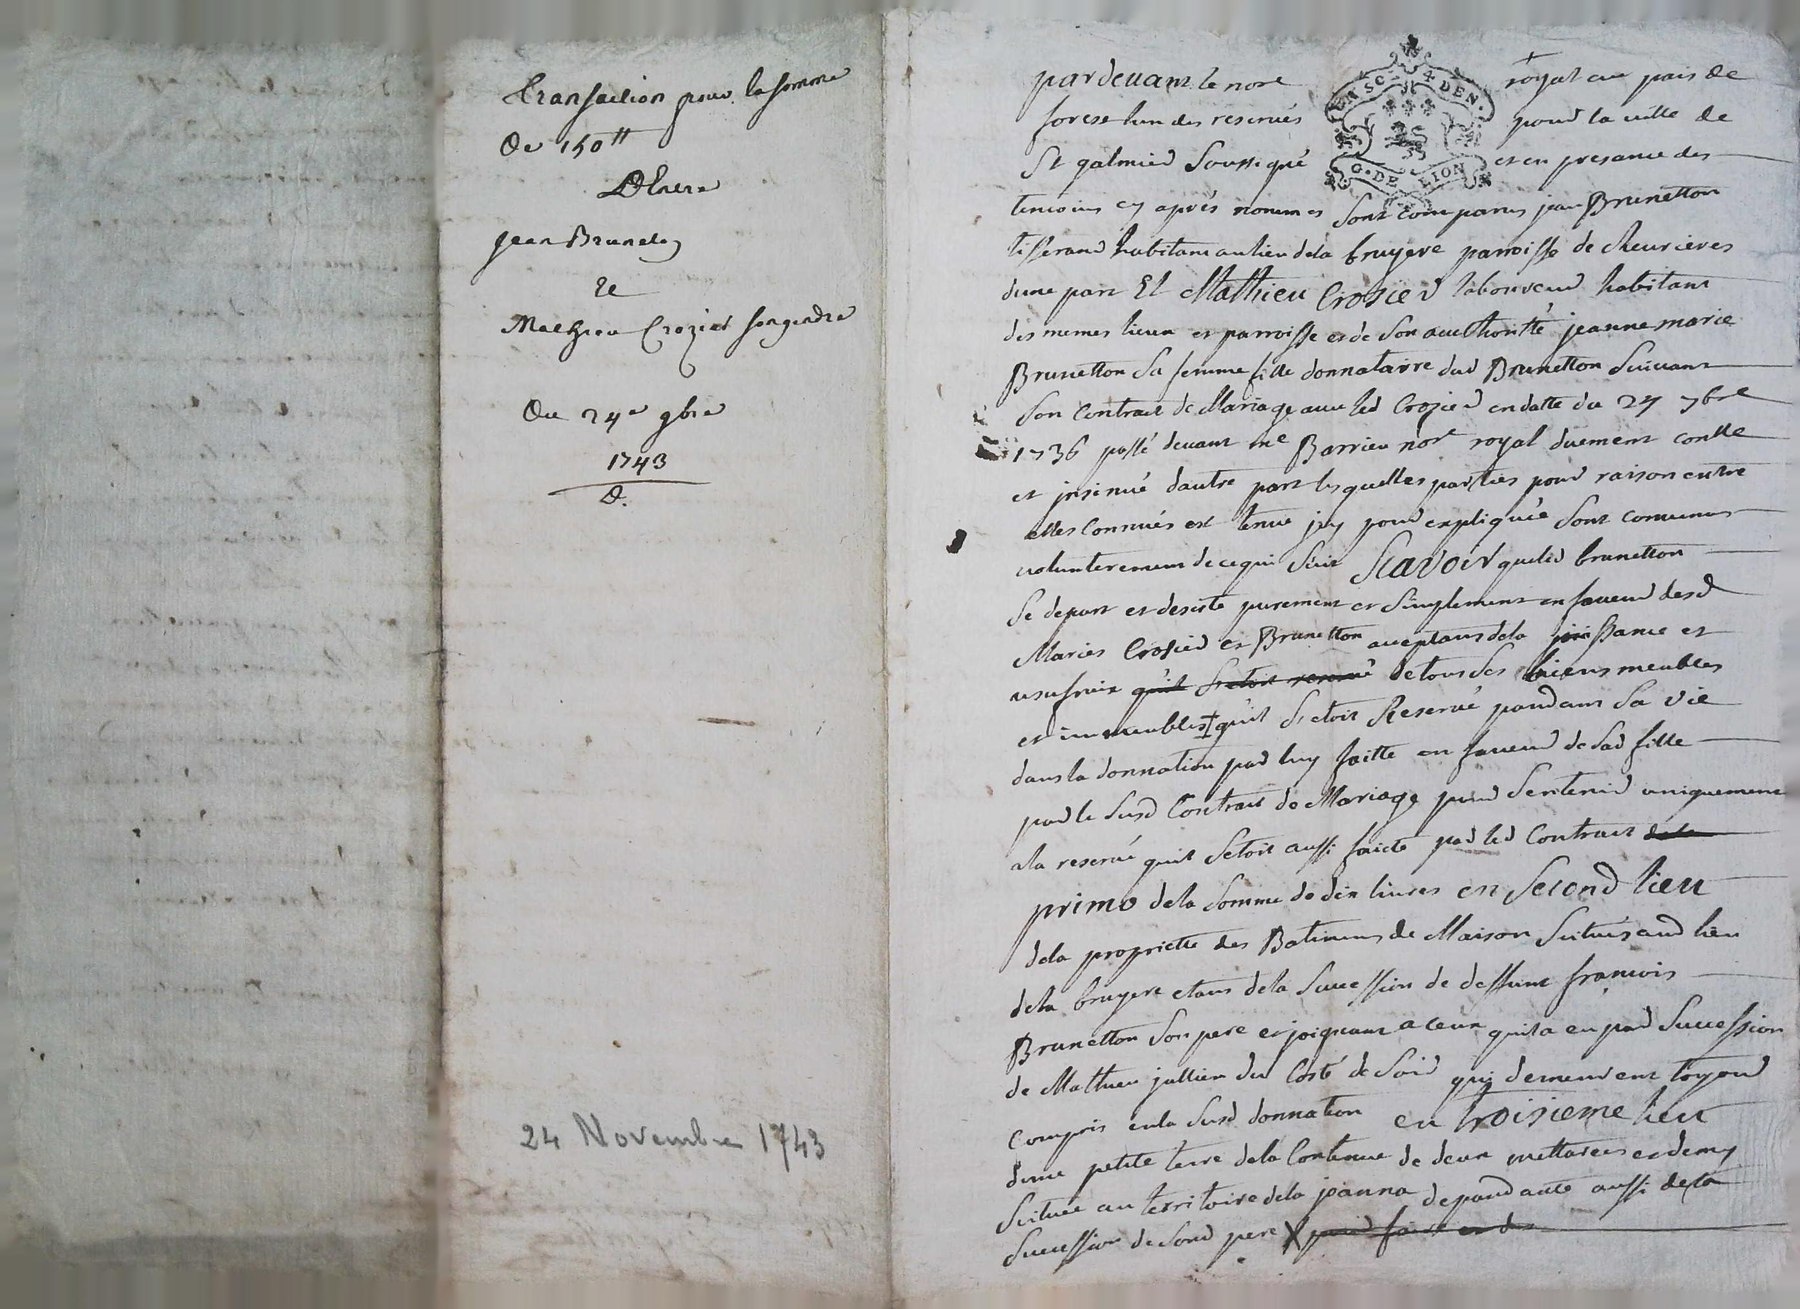 transaction pour la somme
De 150tt
Entre
jean Brunetton
Et
Mathieu Crozier son gendre
Du 24e 9bre
1743
D.
24 Novembre 1743
pardevant le nore royal au pais de
forest lun des reservés pour la ville de
St galmier soussigné et en presance des
GEN SC 4 DEN.
G. DE LION
temoins cy aprés nommes sont comparus jean Brunetton
tisserand habitant au lieu dela bruyere parroisse de chevrieres
dune part Et Mathieu Crosier laboureur habitant
des memes lieux et parroisse et de son authorité jeanne marie
Brunetton sa femme fille donnataire dud Brunetton suivant
son contrait de Mariage avec led Crozier en datte du 27 7bre
1736 passé devant me Barrieu nore royal duement contlle
et insinué dautre part lesquelles parties pour raison entre
elles connues et tenue jcy pour expliquée sont convenus
volunterement de ce qui suit Scavoir que led brunetton
se depart et desiste purement et simplement en faveur desd
Maries Crosier et Brunetton acceptans dela jouissance et
usufruit quil setoit reservé de tous ses biens meubles
et immeubles quil setoit Reservé pandant sa vie
dans la donnation par luy faitte en faveur de sad fille
par le susd Contrait de Mariage pour sentenir uniquement
ala reserve quil setoit aussi faicte par led Contrait dela
primo dela somme de dix livres en second lieu
dela proprieté des Batimens de Maison scitués aud lieu
dela bruyere etans dela succession de deffunt francois
Brunetton son pere et joignant a ceux quil a eu par succession
de Mathieu jullien du Costé de soir quy demeurent toujour
compris en la susd donnation en troisieme lieu
dune petite terre dela Contenue de deux mettarees et demy
scituée au territoire dela joanna depandante aussi dela
succession de sond pere X pour faire et d